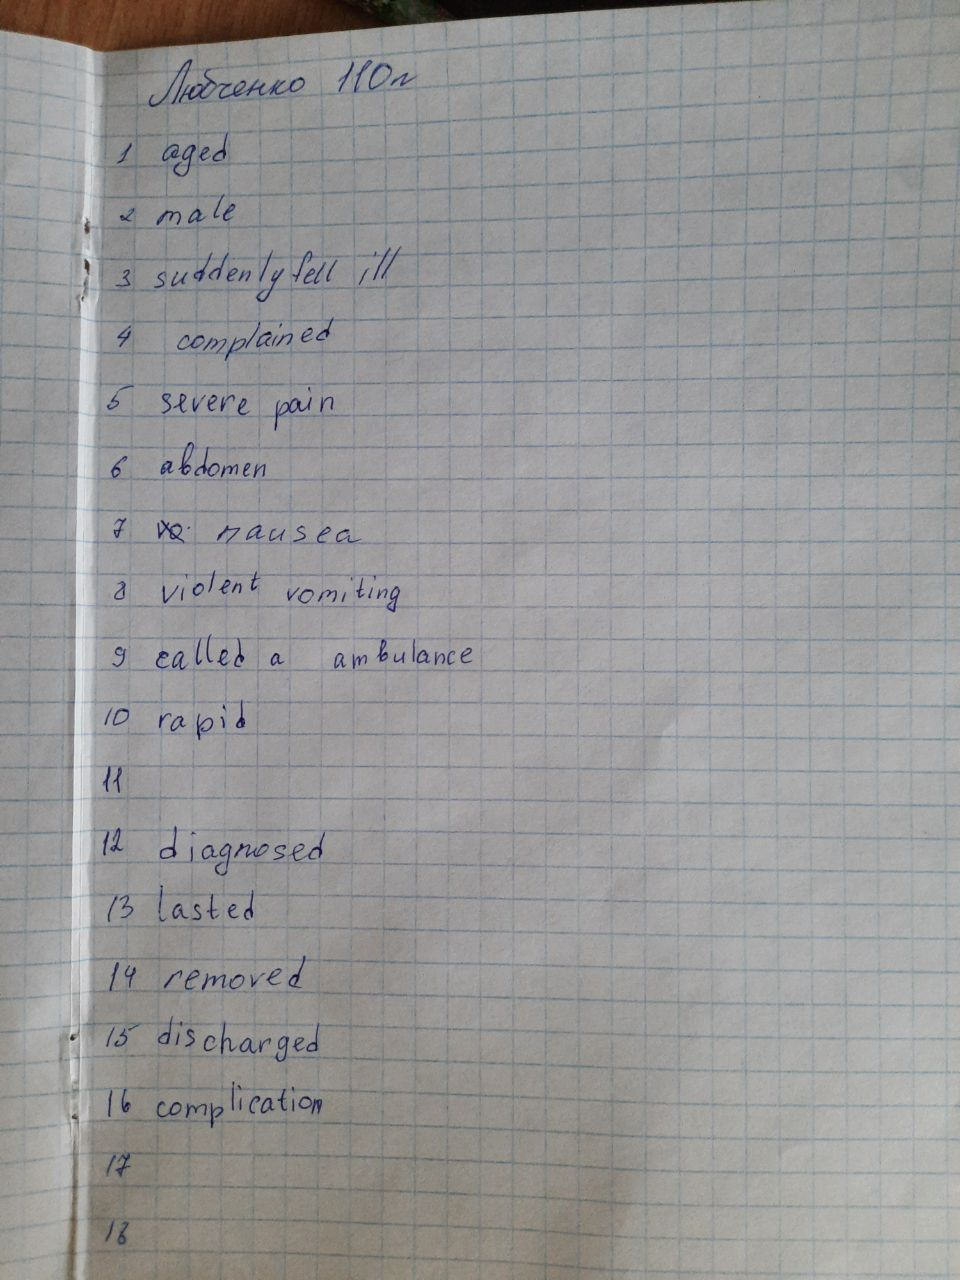 Любченко 110л
1 aged
2 male
3 suddenly fell ill
4 complained
5 severe pain
6 abdomen
7 nausea
8 violent vomiting
9 called a ambulance
10 rapid
11
12 diagnosed
13 lasted
14 removed
15 discharged
16 complication
17
18